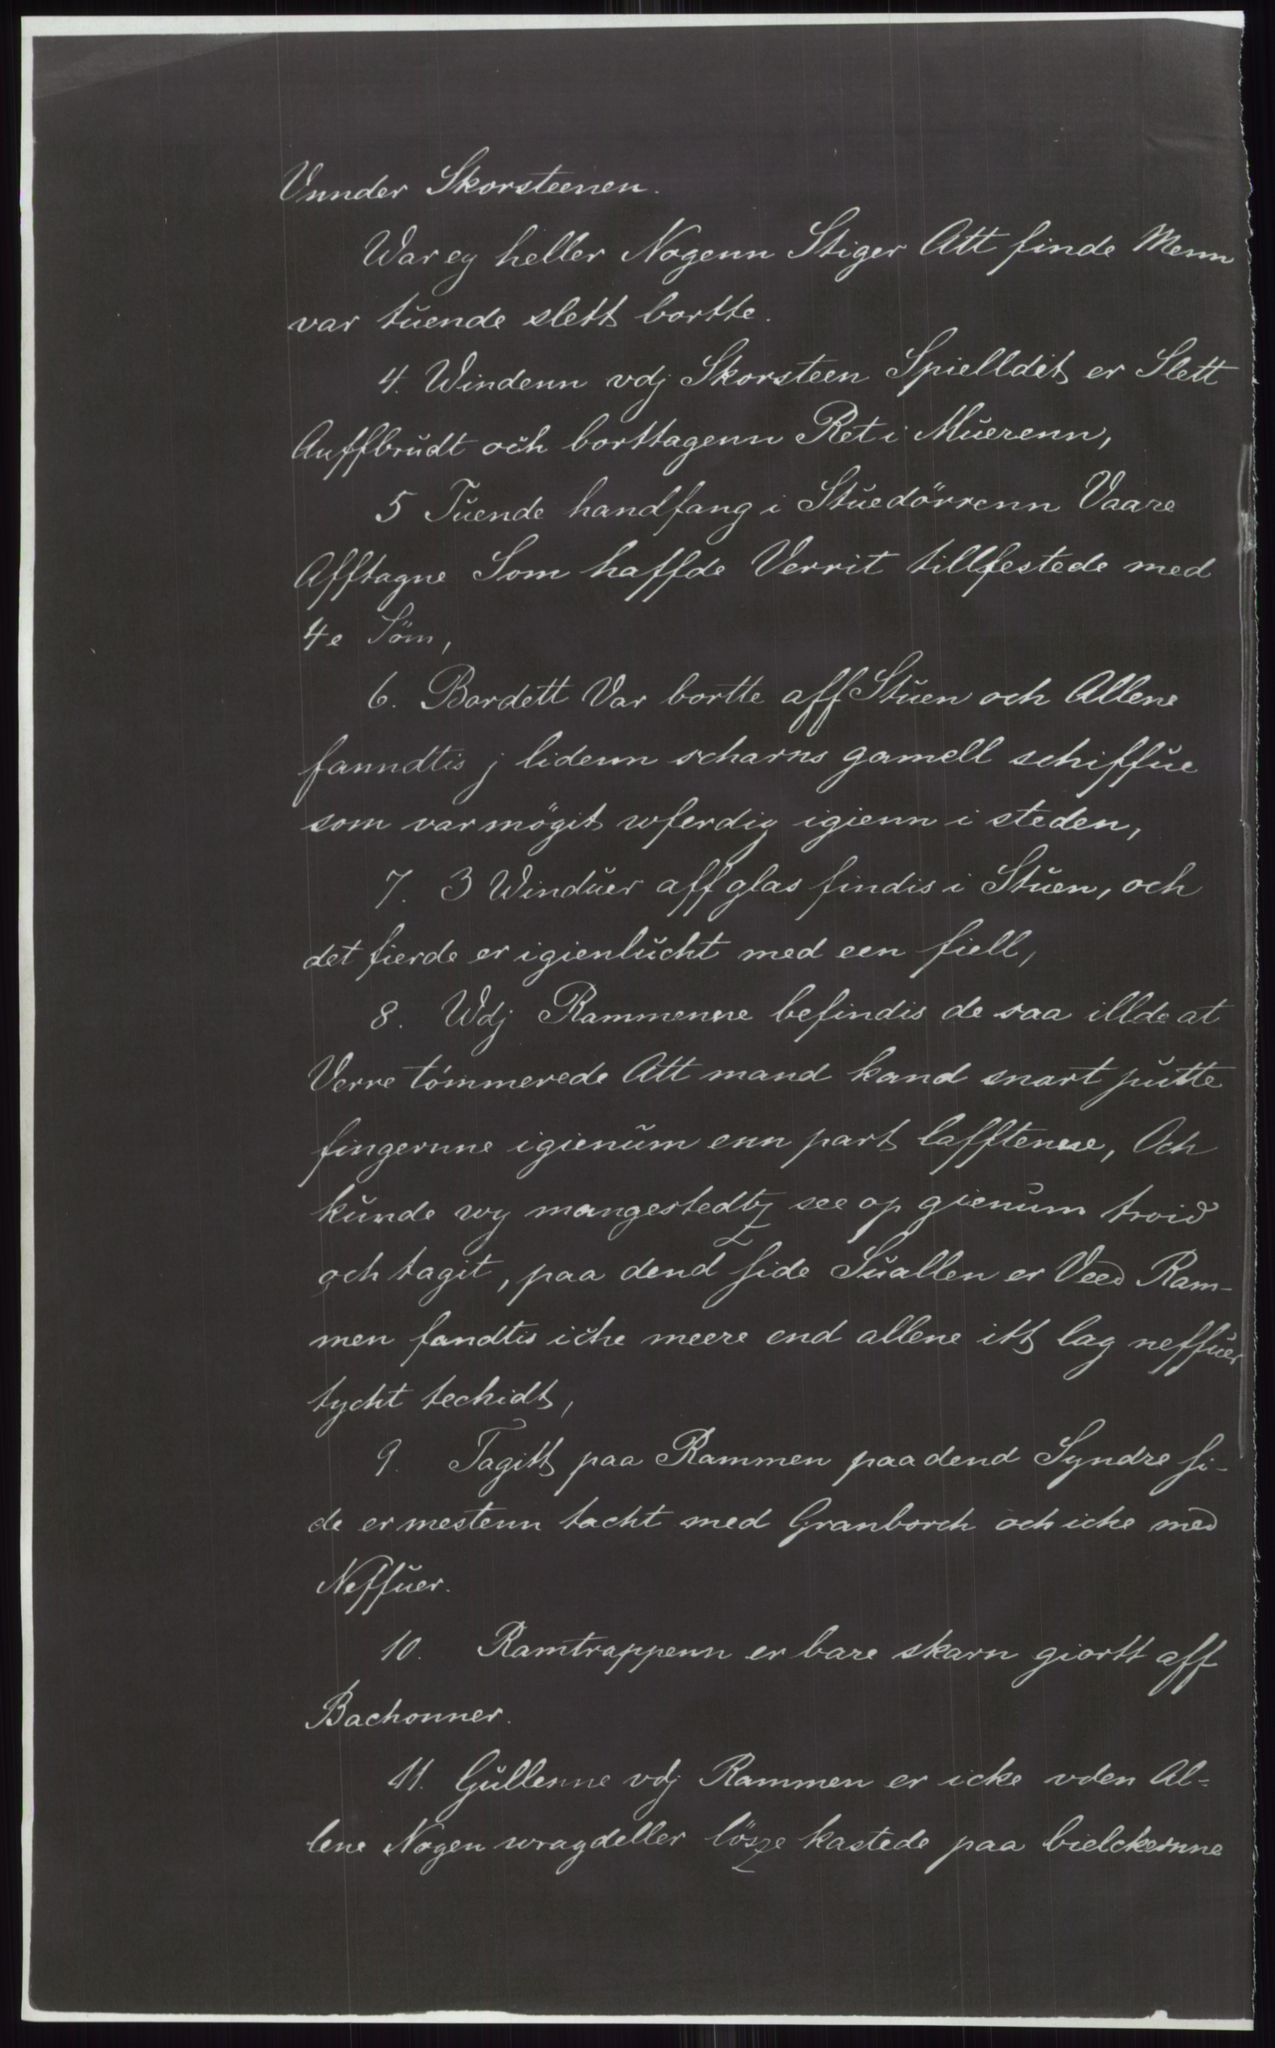 Vnnder Skorsteenen.
War ey heller Nogenn Stiger Att finde Menn
var tuende slett bortte.
4. Windenn vdj Skorsteen Spielldit er Slett
Auffbrudt och borttagenn Ret i Muerenn,
5 Tuende handfang i Stuedörrenn Vaare
Afftagne Som haffde Verrit tillfestede med
4e Söm,
6. Bordett Var bortte aff Stuen och Allene
fanndtis j lidenn scharns gamell schiffue
som var mögit wferdig igienn i steden,
7. 3 Winduer aff glas findis i Stuen, och
det fierde er igienlucht med een fiell,
8. Wdj Rammenne befindis de saa illde at
Verre tömmerede Att mand kand snart putte
fingernne igienum enn part lafftenne, Och
kunde wy mangestedtz see op gienum troid
och tagit, paa dend side Suallen er Veed Ram-
men fandtis iche meere end allene itt lag neffuer
tycht techidt,
9. Tagitt paa Rammen paa dend Syndre si-
de er mestenn tacht med Granborch och icke med
Neffuer.
10. Ramtrappenn er bare skarn giortt aff
Bachonner.
11. Gullenne vdj Rammen er icke vden Al-
lene Nogen wragdeller lösze kastede paa bielckernne